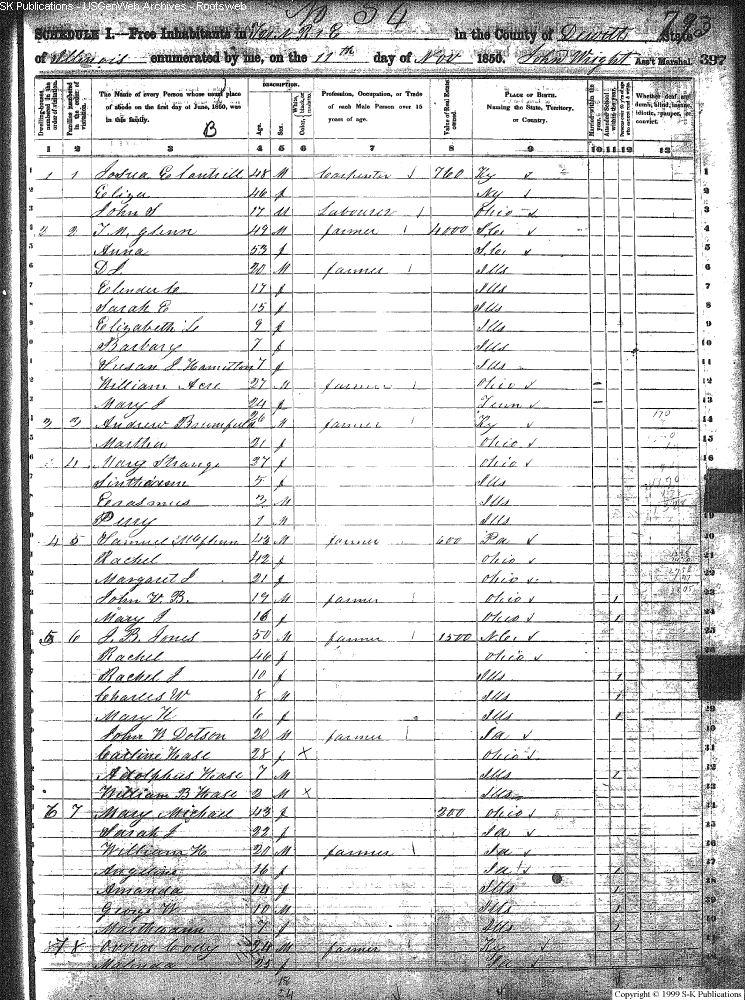 SK Publications - USGenWeb Archives - Rootsweb
No 54
793
SCHEDULE I.—Free Inhabitants in in the County of Dewitt State
of Illinois enumerated by me, on the 11th day of Nov 1850. John Wright Ass't Marshal. 397
DESCRIPTION.
Dwelling-houses numbered in the order of visitation.
Families numbered in the order of visitation.
The Name of every Person whose usual place of abode on the first day of June, 1850, was in this family.
B
Age
Sex
Color, White, black, or mulatto.
Profession, Occupation, or Trade of each Male Person over 15 years of age.
Value of Real Estate owned.
PLACE OF BIRTH. Naming the State, Territory, or Country.
Married within the year.
Attended School within the year.
Whether deaf and dumb, blind, insane, idiotic, pauper, or convict.
1 2 3 4 5 6 7 8 9 10 11 12 13
1 1 Josua E Cantrill 48 M Carpenter 760 Ky
Eliza 46 f Ky
John S 17 M Labourer Ohio
2 2 T. N. Glenn 49 M farmer 4000 S.C.
Anna 53 f S.C.
D L 20 M farmer Ills
Elender C 17 f Ills
Sarah E 15 f Ills
Elizabeth L 9 f Ills
Barbary 7 f Ills
Susan J Hamilton 7 f Ills
William Acre 27 M farmer Ohio
Mary J 24 f Tenn
3 3 Andrew Brumfield 26 M farmer Ky
Martha 21 f Ohio
4 Mary Strange 27 f Ohio
5 f Ills
Erasmus 3 M Ills
Perry 1 M Ills
4 5 Samuel 43 M farmer 600 Pa
Rachel 42 f Ohio
Margaret J 21 f Ohio
John V. B. 19 M farmer Ohio 1
Mary J 16 f Ohio 1
5 6 J. B. Jones 50 M farmer 1500 N.C.
Rachel 46 f Ohio
Rachel J 10 f Ills 1
Charles W 8 M Ills 1
Mary K 6 f Ills 1
John W Dotson 20 M farmer Ia
Carline Hase 28 f X Ohio
Adolphus Hase 7 M Ills 1
William B Hase 2 M X Ills
6 7 Mary Michael 43 f 200 Ohio
Sarah J 22 f Ia
William H 20 M farmer Ia
Angeline 16 f Ia 1
Amanda 14 f Ills 1
George W 10 M Ills 1
7 f Ills 1
7 8 Orrin Cody 24 M farmer
Malinda 25 f Ia
Copyright © 1999 S-K Publications